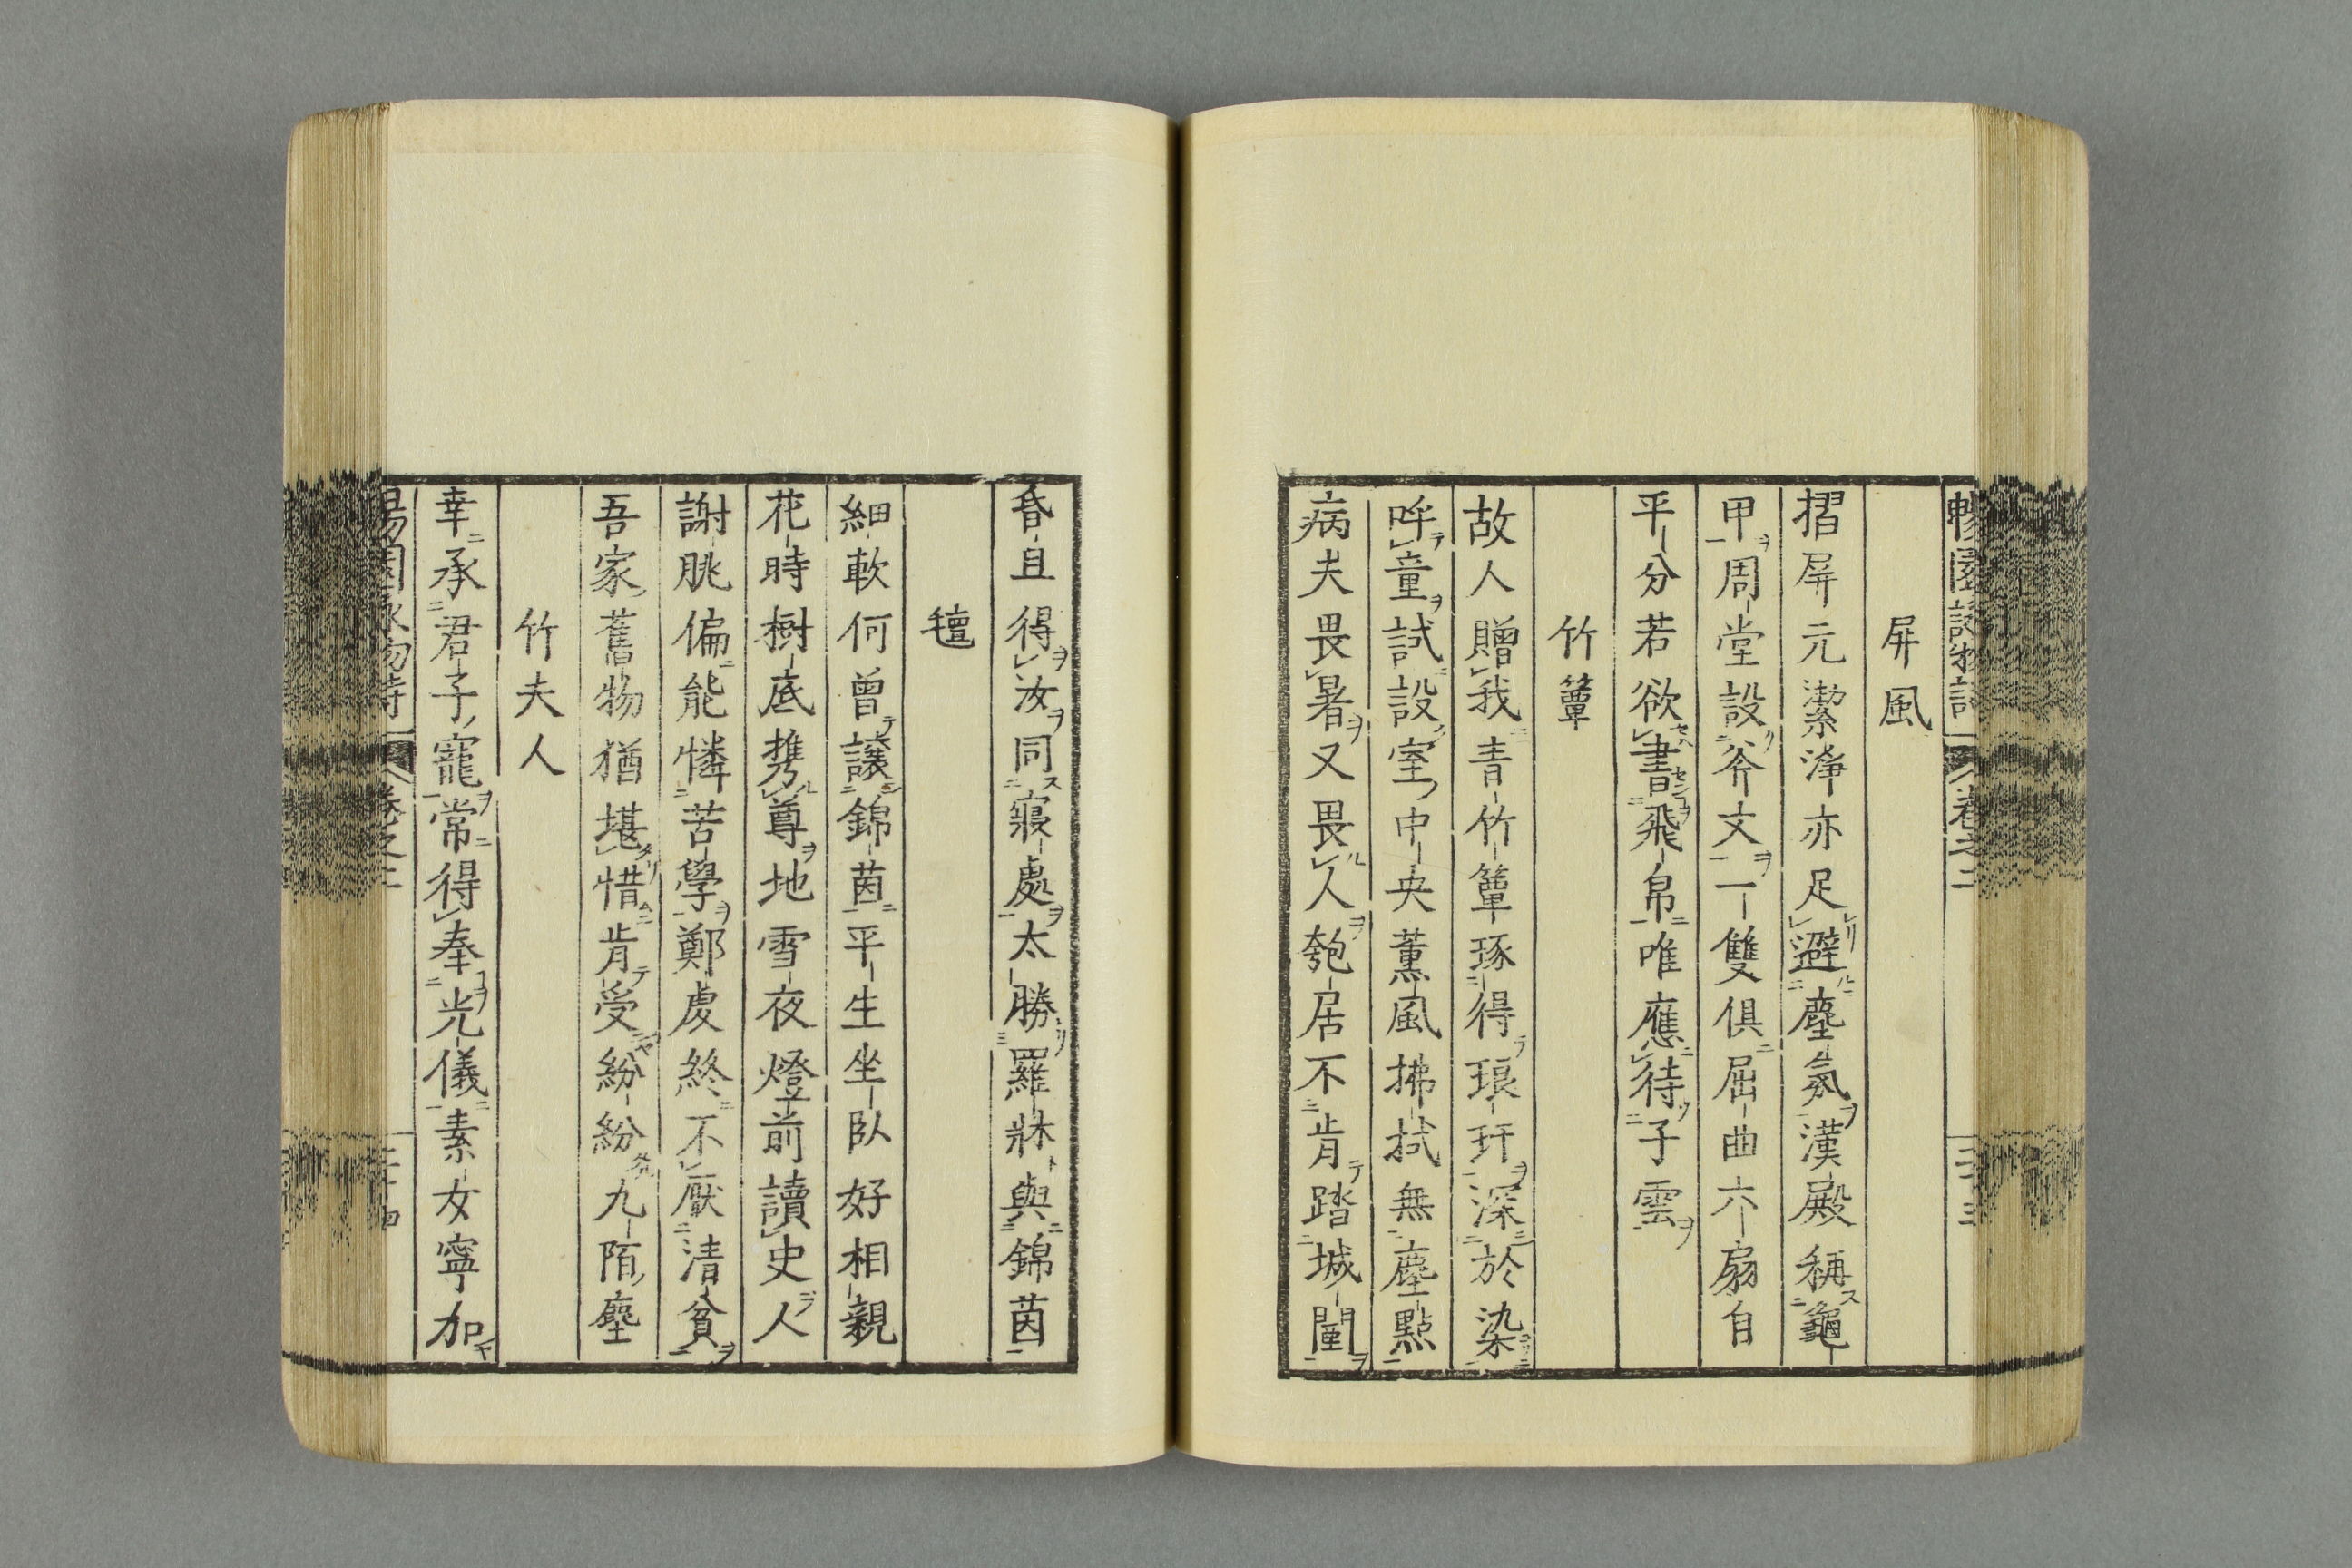 暢園詠物詩 卷之二 二十三
屏風
摺屏元潔淨亦足避塵氛漢殿稱龜
甲周堂設斧文一雙俱屈曲六扇自
平分若欲書飛帛唯應待子雲
竹簟
故人贈我青竹簟琢得琅玕深於染
呼童試設室中央薰風拂拭無塵點
病夫畏暑又畏人匏居不肯踏城闉
昏且得汝同寢處太勝羅牀與錦茵
氊
細軟何曾讓錦茵平生坐臥好相親
花時樹底携尊地雪夜燈前讀史人
謝朓偏能憐苦學鄭虔終不厭清貧
吾家舊物猶堪惜肯受紛紛九陌塵
竹夫人
幸承君子寵常得奉光儀素女寧加
暢園詠物詩 卷之二 二十四